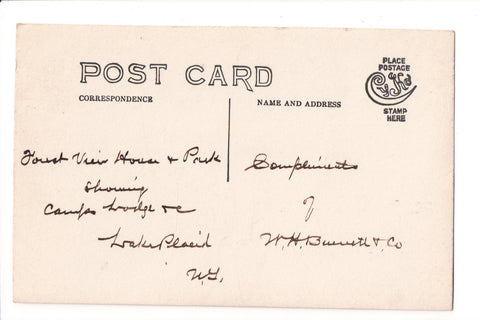 POST CARD
CORRESPONDENCE
NAME AND ADDRESS
PLACE
POSTAGE
STAMP
HERE
Forest View House & Park
Showing
Camps Lodge &c
Lake Placid
N.Y.
Compliments
of
W. H. Burnett & Co